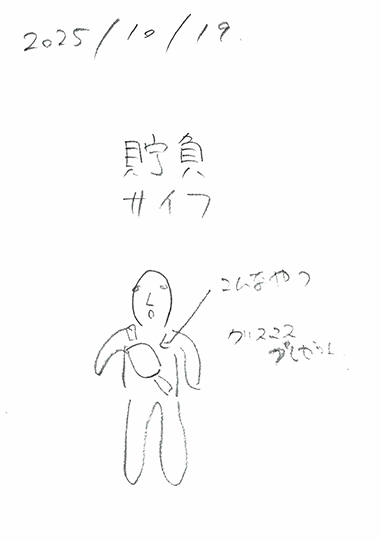 2025/10/19
貯負
サイフ
こんなやつ
クリスマス
プレゼント